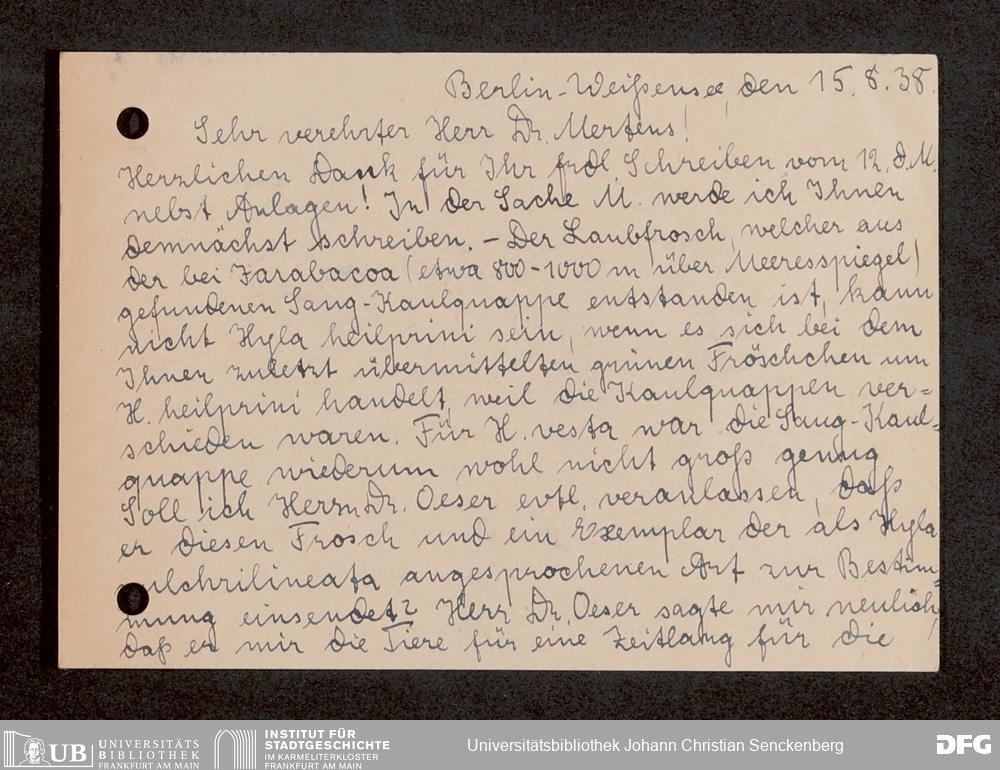 Berlin-Weißensee, den 15.8.38.
Sehr verehrter Herr Dr. Mertens!
Herzlichen Dank für Ihr frdl. Schreiben vom 12. d. M.
nebst Anlagen! In der Sache M. werde ich Ihnen
demnächst schreiben. – Der Laubfrosch, welcher aus
der bei Jarabacoa (etwa 800-1000 m über Meeresspiegel)
gefundenen Saug-Kaulquappe entstanden ist, kann
nicht Hyla heilprini sein, wenn es sich bei dem
Ihnen zuletzt übermittelten grünen Fröschchen um
H. heilprini handelt, weil die Kaulquappen ver=
schieden waren. Für H. vasta war die Saug-Kaul=
quappe wiederum wohl nicht groß genug
Soll ich Herrn Dr. Oeser evtl. veranlassen, daß
er diesen Frosch und ein Exemplar der als Hyla
pulchrilineata angesprochenen Art zur Bestim=
mung einsendet? Herr Dr. Oeser sagte mir neulich,
daß er mir die Tiere für eine Zeitlang für die
UB UNIVERSITÄTS
BIBLIOTHEK
FRANKFURT AM MAIN
INSTITUT FÜR
STADTGESCHICHTE
IM KARMELITERKLOSTER
FRANKFURT AM MAIN
Universitätsbibliothek Johann Christian Senckenberg
DFG